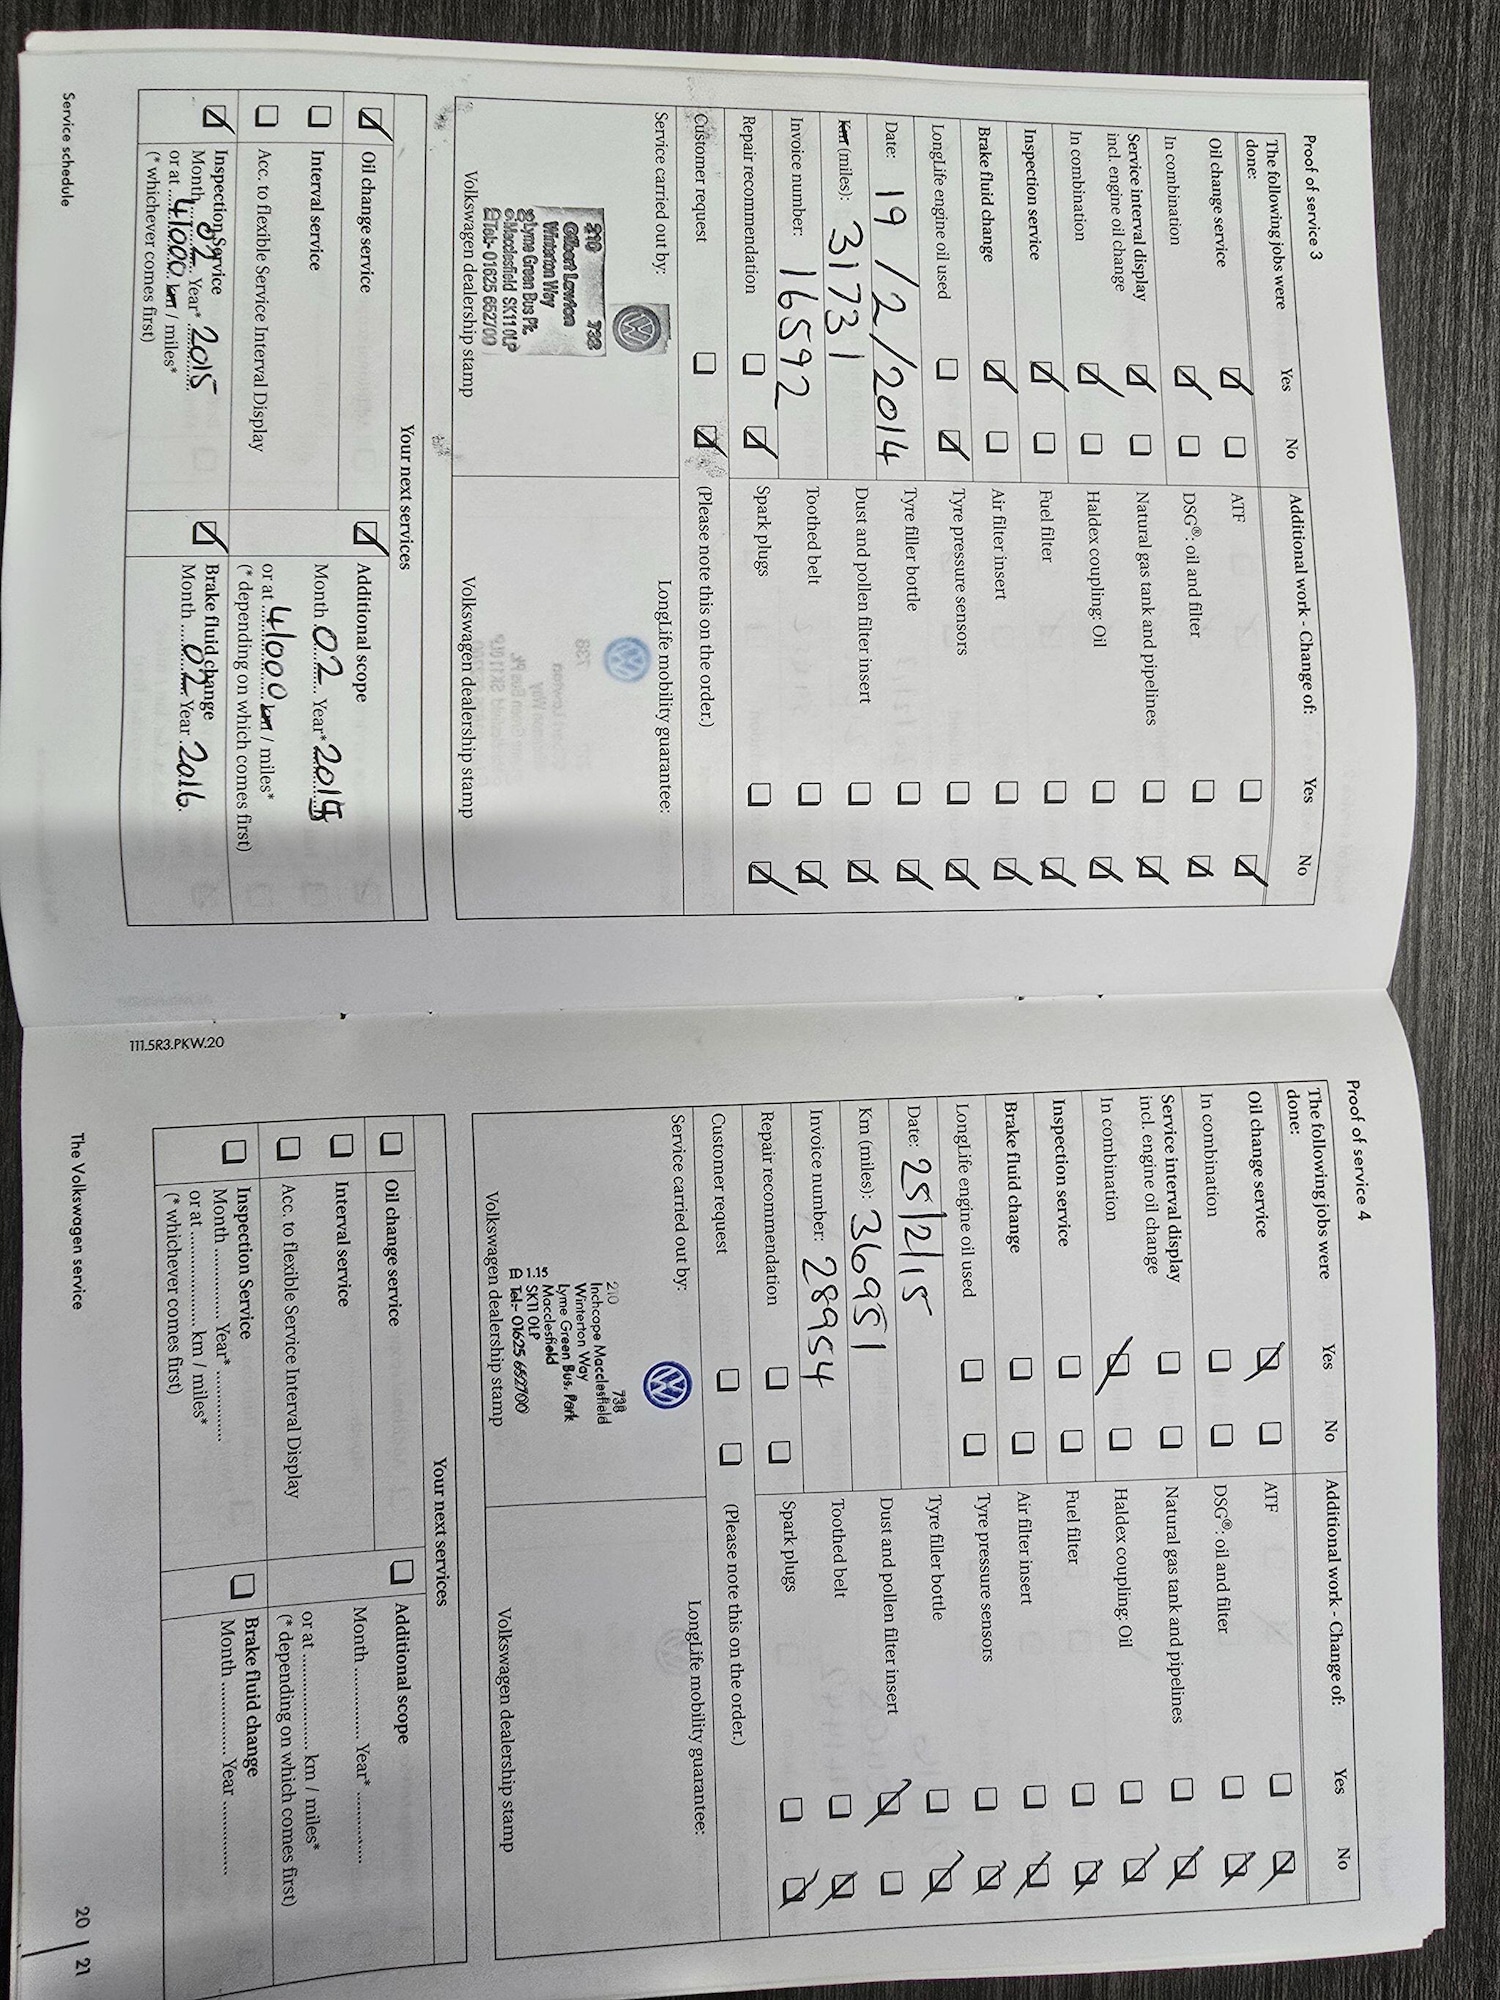 Proof of service 3
The following jobs were done:
Yes
No
Additional work - Change of:
Yes
No
Oil change service
ATF
In combination
DSG®: oil and filter
Service interval display
incl. engine oil change
Natural gas tank and pipelines
In combination
Haldex coupling: Oil
Inspection service
Fuel filter
Brake fluid change
Air filter insert
LongLife engine oil used
Tyre pressure sensors
Date: 19/2/2014
Tyre filler bottle
Km (miles): 31731
Dust and pollen filter insert
Invoice number: 16592
Toothed belt
Repair recommendation
Spark plugs
Customer request
(Please note this on the order.)
Service carried out by:
LongLife mobility guarantee:
210 738
Gilbert Lawton
Winterton Way
Lyme Green Bus Pk.
Macclesfield SK11 0LP
Tel:- 01625 652700
Volkswagen dealership stamp
Volkswagen dealership stamp
Your next services
Oil change service
Additional scope
Interval service
Month 02 Year*
Acc. to flexible Service Interval Display
or at 41000 km / miles*
(* depending on which comes first)
Inspection Service
Month 02 Year* 2015
or at 41000 km / miles*
(* whichever comes first)
Brake fluid change
Month 02 Year 2016
Service schedule
111.5R3.PKW.20
Proof of service 4
The following jobs were done:
Yes
No
Additional work - Change of:
Yes
No
Oil change service
ATF
In combination
DSG®: oil and filter
Service interval display
incl. engine oil change
Natural gas tank and pipelines
In combination
Haldex coupling: Oil
Inspection service
Fuel filter
Brake fluid change
Air filter insert
LongLife engine oil used
Tyre pressure sensors
Date: 25/2/15
Tyre filler bottle
Km (miles): 36951
Dust and pollen filter insert
Invoice number: 28954
Toothed belt
Repair recommendation
Spark plugs
Customer request
(Please note this on the order.)
Service carried out by:
LongLife mobility guarantee:
210 738
Inchcape Macclesfield
Winterton Way
Lyme Green Bus. Park
Macclesfield
SK11 0LP
1.15 Tel:- 01625 652700
Volkswagen dealership stamp
Volkswagen dealership stamp
Your next services
Oil change service
Additional scope
Interval service
Month ............ Year* ............
Acc. to flexible Service Interval Display
or at ................ km / miles*
(* depending on which comes first)
Inspection Service
Month ............ Year* ............
or at ................ km / miles*
(* whichever comes first)
Brake fluid change
Month ............ Year ............
The Volkswagen service
20 | 21